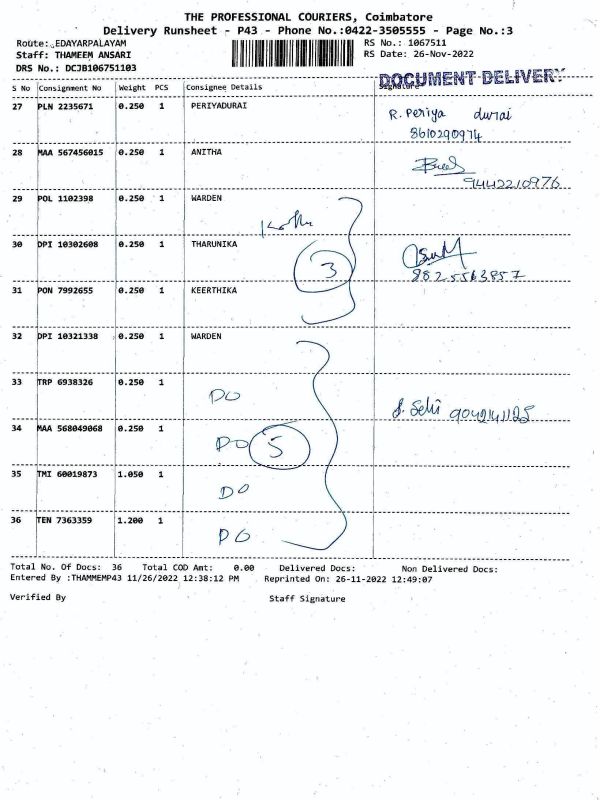 THE PROFESSIONAL COURIERS, Coimbatore
Delivery Runsheet - P43 - Phone No.:0422-3505555 - Page No.:3
Route: EDAYARPALAYAM RS No.: 1067511
Staff: THAMEEM ANSARI RS Date: 26-Nov-2022
DRS No.: DCJB106751103
DOCUMENT DELIVERY
S No Consignment No Weight PCS Consignee Details Signature
27 PLN 2235671 0.250 1 PERIYADURAI R. Periya durai
8610290974
28 MAA 567456015 0.250 1 ANITHA
9442210976
29 POL 1102398 0.250 1 WARDEN
30 DPI 10302608 0.250 1 THARUNIKA 3
8825563857
31 PON 7992655 0.250 1 KEERTHIKA
32 DPI 10321338 0.250 1 WARDEN
33 TRP 6938326 0.250 1 DO
9042141125
34 MAA 568049068 0.250 1 DO 5
35 TMI 60019873 1.050 1 DO
36 TEN 7363359 1.200 1 DO
Total No. Of Docs: 36 Total COD Amt: 0.00 Delivered Docs: Non Delivered Docs:
Entered By :THAMMEMP43 11/26/2022 12:38:12 PM Reprinted On: 26-11-2022 12:49:07
Verified By Staff Signature